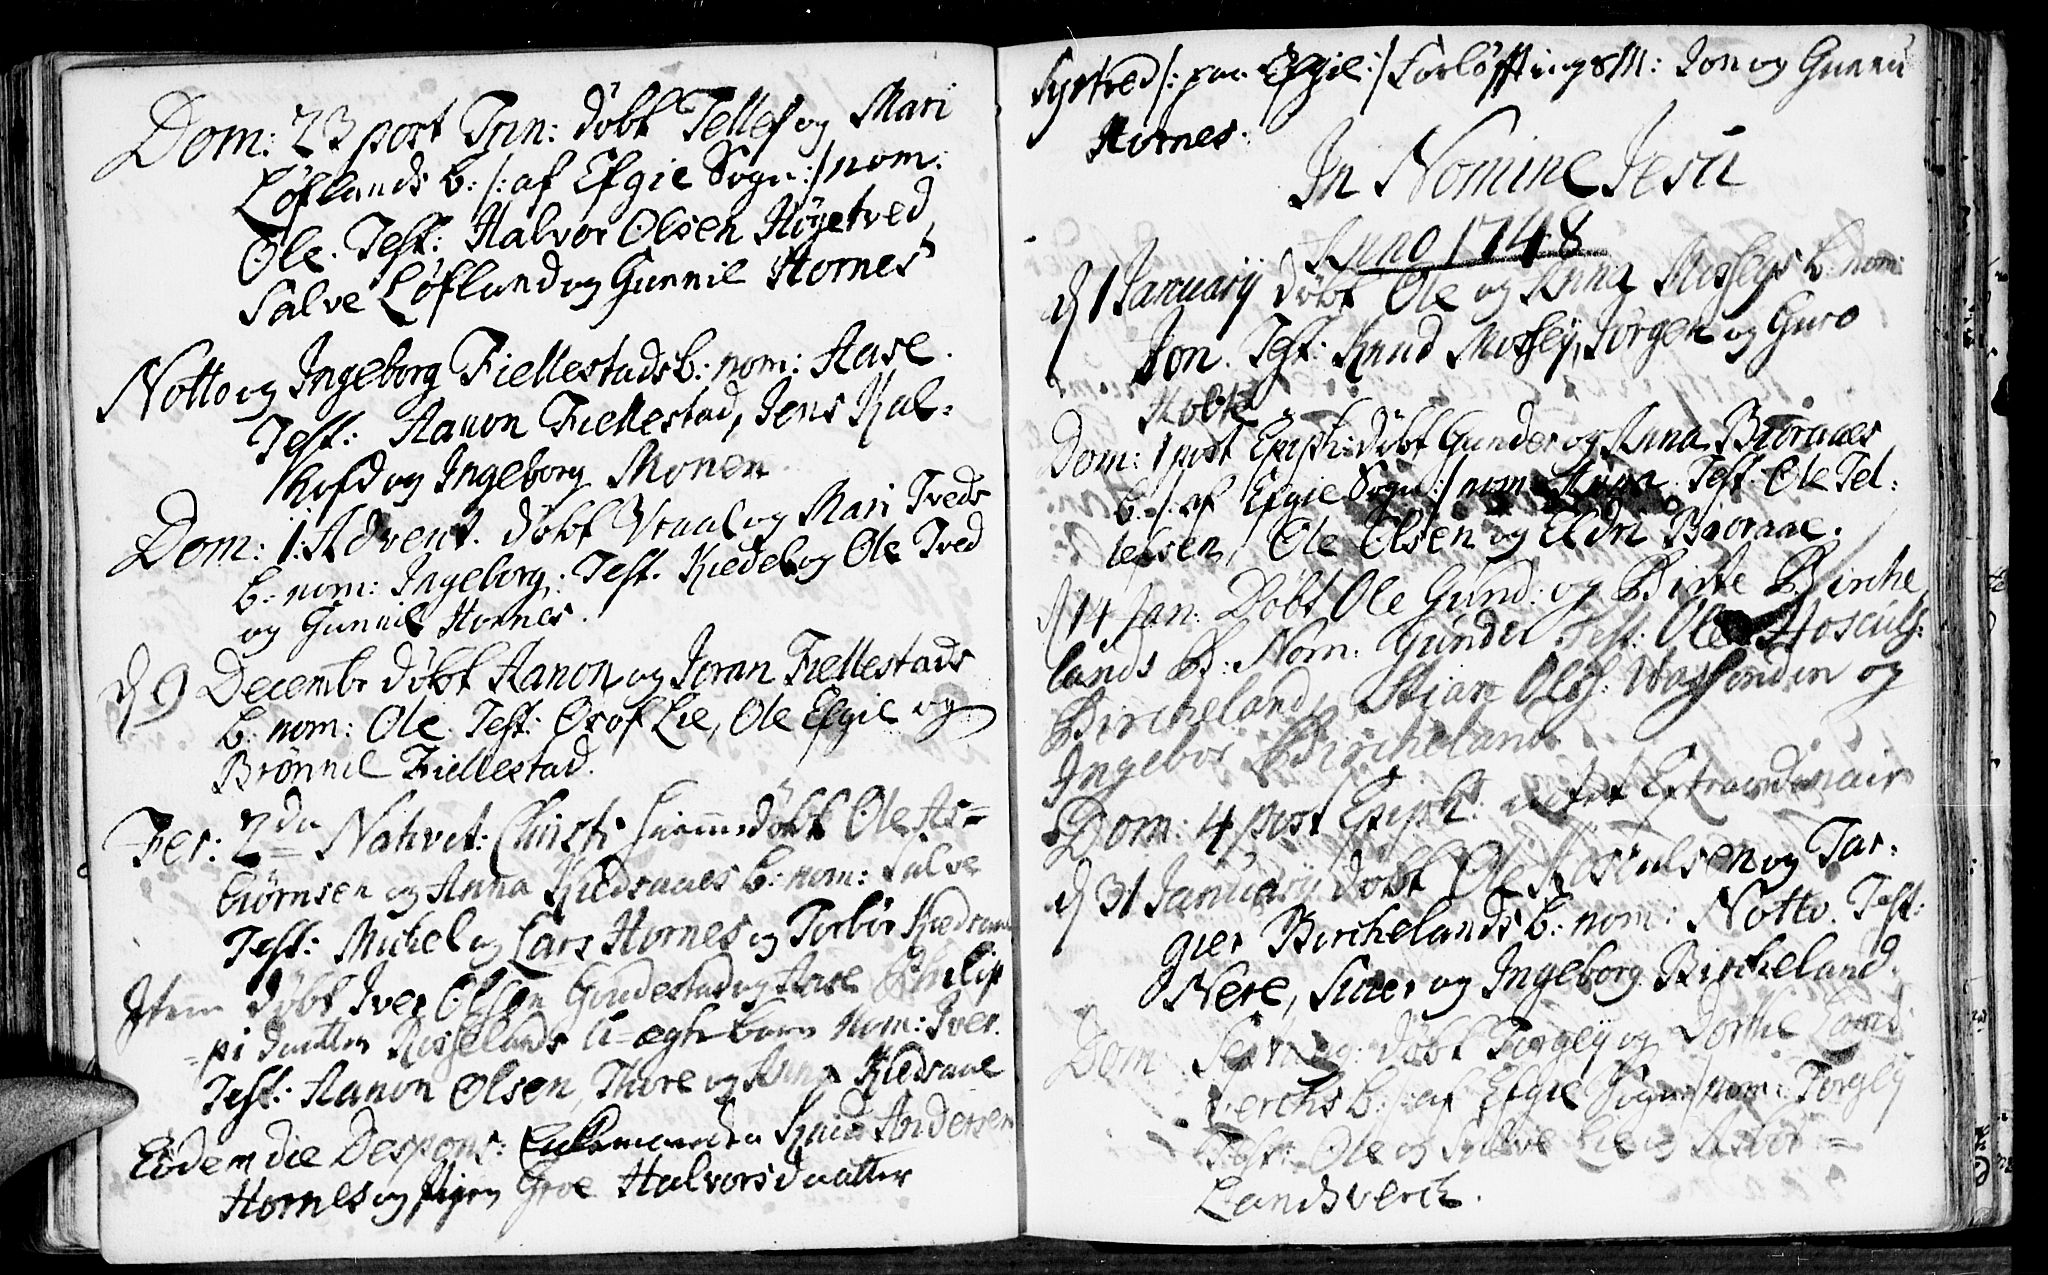 Dom: 23 post Trin: døbt Tellef og Mari
Løflands b: /: af Efgie Sogn :/ nom:
Ole. Test: Halvor Olsen Høgetved,
Salve Løfland og Gunnil Hornes
Notto og Ingeborg Fiellestads b: nom: Aase.
Test: Aanon Fiellestad, Jens Kal-
hofd og Ingeborg Monen
Dom: 1. Advent. døbt Vraal og Mari Tveds
b: nom: Ingeborg: Test. Kiedel og Ole Tved
og Gunnil Hornes.
d 9 Decembr døbt Aanon og Joran Fiellestads
b: nom: Ole. Test: Osof Lie, Ole Efgie og
Brønnil Fiellestad.
Fer: 2da Nativit: Christi døbt Ole As=
biørnsen og Anna Kiedsaaes b: nom: Salve
Test: Michel og Lars Hornes og Torbør Kiedsaae
Item døbt Iver Olsen Gundestad og Aase Philip
=pi daatter Risselands U=ægte barn nom: Iver.
Test: Aanon Olsen, Thore og Anna Kiedsaae
Eodem die Despons: Enkemanden Knud Andersen
Hornes og pigen Groe Halvorsdaatter
/: paa Efgie :/ Forløfftings M: Jon og Gunnu
Hornes.
In Nomine Jesu
Anno 1748
d 1 Januarij døbt Ole og Anna Mosseys b: nom:
Jon. Test: Knud Mossey, Jørgen og Guro
Holte
Dom: 1 post Epiph: døbt Gunder og Anna Bioraaes
b: /: af Efgie Sogn :/ nom: Anna. Test. Ole Tel:
lefsen, Ole Olsen og Eldri Bioraae.
d 14 Jan: Døbt Ole Gund: og Birte Birche
lands B: Nom: Gunder Test: Ole Hosculs:
Bircheland, Stian Ols: Vassenden og
Ingebor Bircheland
Dom: 4 post Epiph: Extraordinair
d 31 Januarij døbt Ole og Tar:
gier Birchelands b: nom: Notto. Test:
Nere, Siver og Ingeborg Bircheland.
Dom: døbt Torgey og Dorthe Lands
verchs b: /: af Efgie Sogn :/ nom: Torgey
Test: Ole og Salve Lie og
Landsverch.